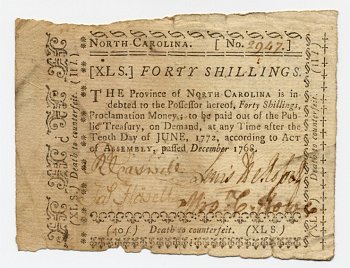 NORTH CAROLINA. [ No. 2947. ]
[XLS.] FORTY SHILLINGS.
THE Province of NORTH CAROLINA is in
debted to the Possessor hereof, Forty Shillings,
Proclamation Money,; to be paid out of the Pub
lic Treasury, on Demand, at any Time after the
Tenth Day of JUNE, 1772, according to ACT
of ASSEMBLY, passed December 1768.
(40s.) Death to counterfeit. (XLS.)
(XLS.) Death to counterfeit. (111.)
(XLS.) Death to counterfeit.